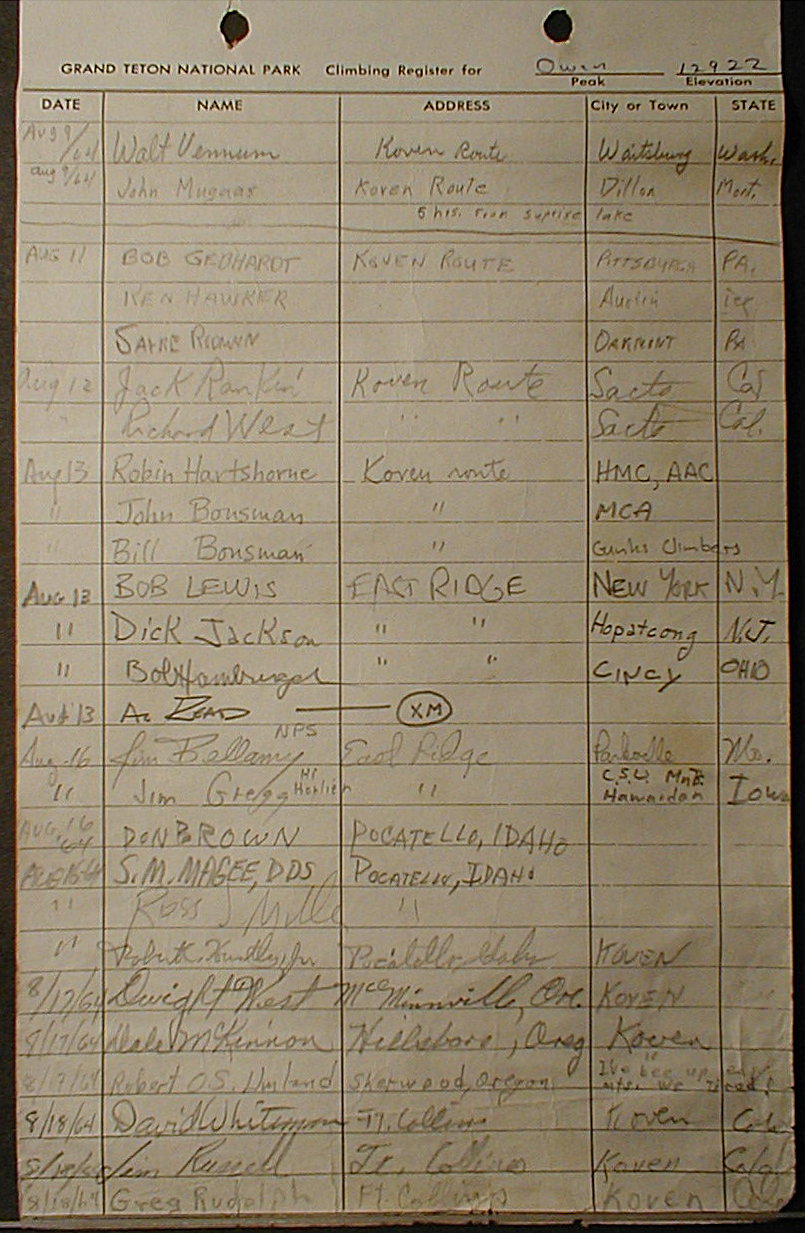 GRAND TETON NATIONAL PARK Climbing Register for Owen 12922
Peak Elevation
DATE NAME ADDRESS City or Town STATE
Aug 9/64 Walt Vennum Koven Route Waitsburg Wash.
Aug 9/64 John Mugaas Koven Route Dillon Mont.
5 hrs. from suprise lake
AUG 11 BOB GEBHARDT KOVEN ROUTE PITTSBURGH PA.
KEN HAWKER Austin
OAKMONT PA
Aug 12 Jack Rankin Koven Route Sacto Cal
" Richard West " " Sacto Cal.
Aug 13 Robin Hartshorne Koven route HMC, AAC
" John Bousman " MCA
" Bill Bousman " Gunks Climbers
Aug 13 BOB LEWIS EAST RIDGE NEW YORK N.Y.
" Dick Jackson " " Hopatcong N.J.
" Bob Hamburger " " CINCY OHIO
Aug 13 AL READ XM
NPS
Aug 16 Jim Bellamy East Ridge Parkville Mo.
" Jim Gregg Hi " C.S.U. Mnt. Iowa
AUG. 16 64 DON BROWN POCATELLO, IDAHO
S.M. MAGEE, DDS POCATELLO, IDAHO
" Ross J Mille "
" Robert Jr Pocatello, Idaho KOVEN
8/17/64 Dwight West McMinnville, Ore. KOVEN "
8/17/64 Dale McKinnon Hillsboro, Oreg Koven
8/17/64 Robert O.S. Sherwood, Oregon
8/18/64 David Whiteman Ft. Collins Koven Colo
8/18/64 Jim Russell Ft. Collins Koven Colo
8/18/64 Greg Rudolph Ft. Collins Koven Colo